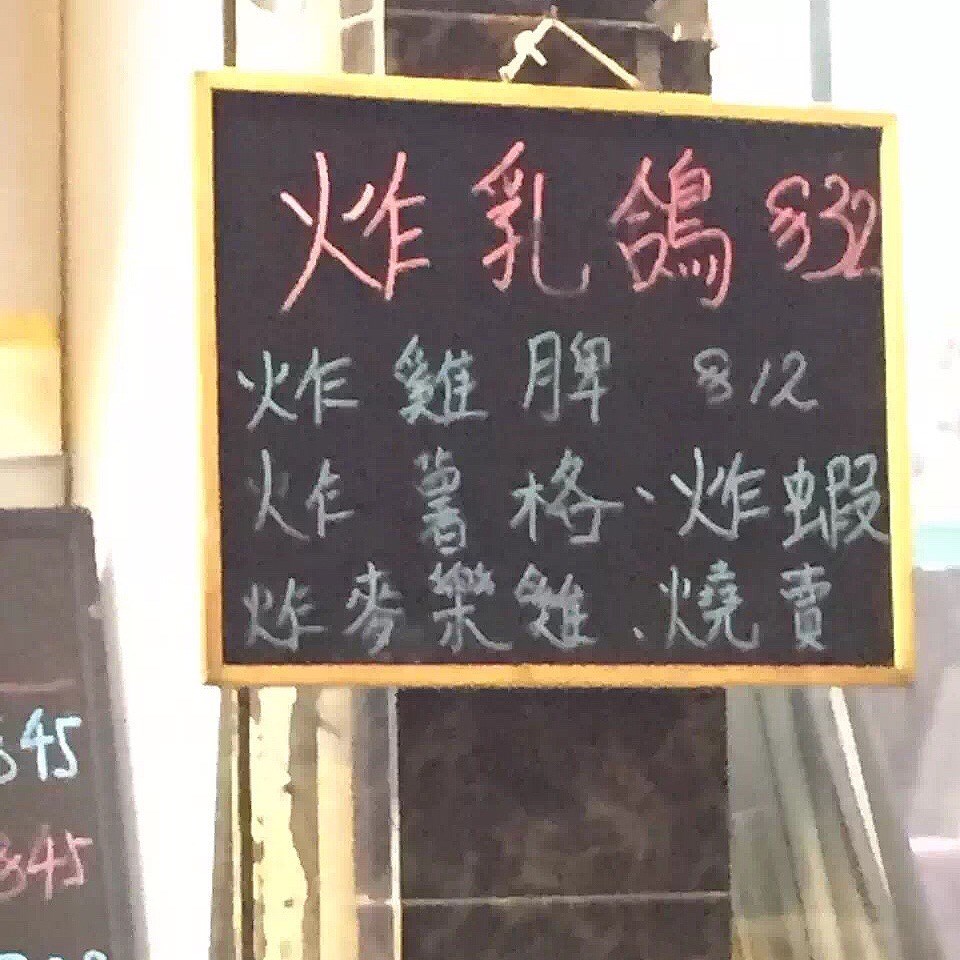 炸乳鴿 $32
炸雞脾 $12
炸薯格、炸蝦
炸麥樂雞、燒賣
$45
$45